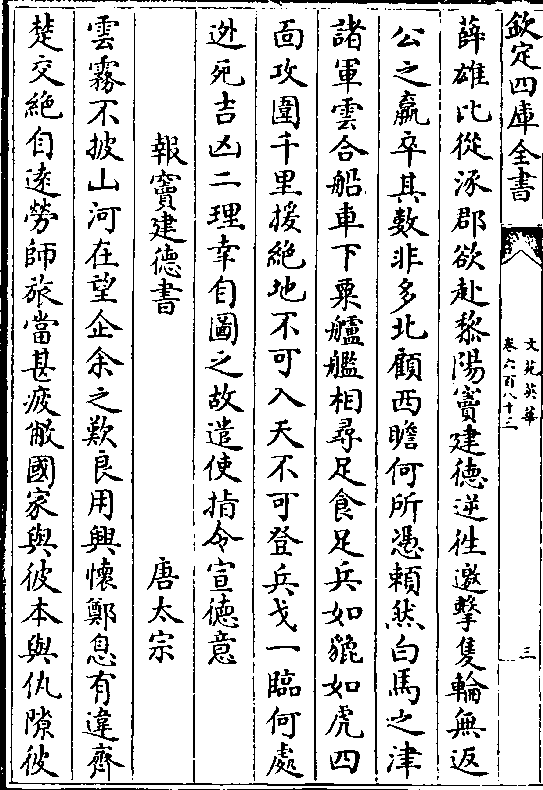 欽定四庫全書
文苑英華
卷六百八十三
三
薛雄比從涿郡欲赴黎陽竇建德逆徃邀擊隻輪無返
公之羸卒其數非多北顧西瞻何所憑賴然白馬之津
諸軍雲合船車下粟艫艦相尋足食足兵如貔如虎四
面攻圍千里援絶地不可入天不可登兵戈一臨何處
逃死吉凶二理幸自圖之故遣使指令宣德意
報竇建德書 唐太宗
雲霧不披山河在望企余之歎良用興懷鄭息有違齊
楚交絶自逺勞師旅當甚疲敝國家與彼本與仇隙彼